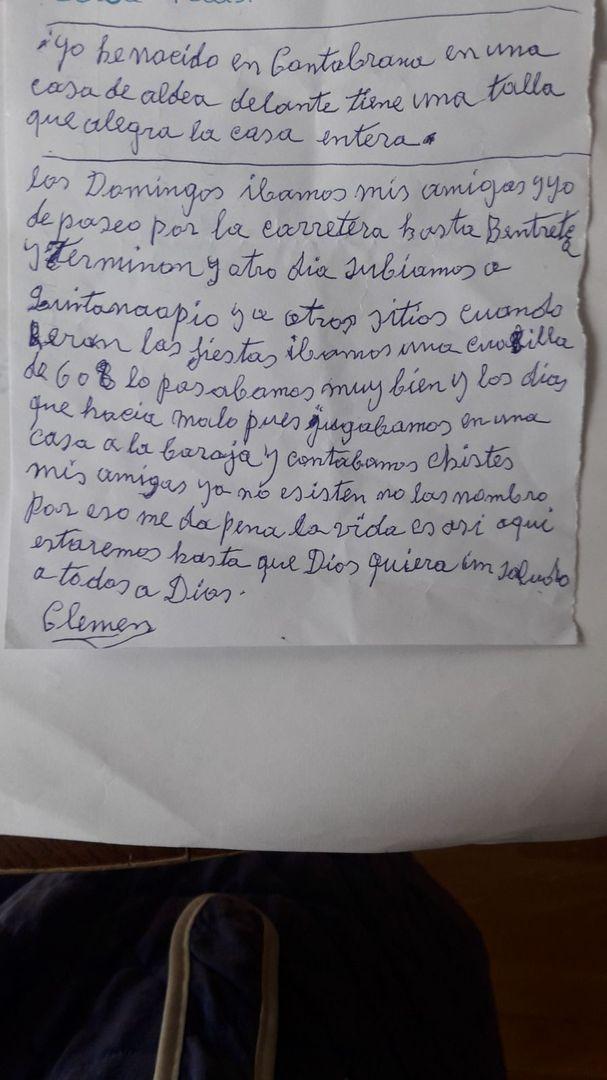 ¡Yo he nacido en Cantabrana en una
casa de aldea delante tiene una talla
que alegra la casa entera.
los Domingos ibamos mis amigas y yo
de paseo por la carretera hasta Bentretea
y Terminon y otro dia subiamos a
Quintanaopio y a otros sitios cuando
eran las fiestas ibamos una cuadrilla
de 6 o 8 lo pasabamos muy bien y los dias
que hacia malo pues jugabamos en una
casa a la baraja y contabamos chistes
mis amigas ya no esisten no las nombro
por eso me da pena la vida es asi aqui
estaremos hasta que Dios quiera un saludo
a todos a Dios.
Clemen